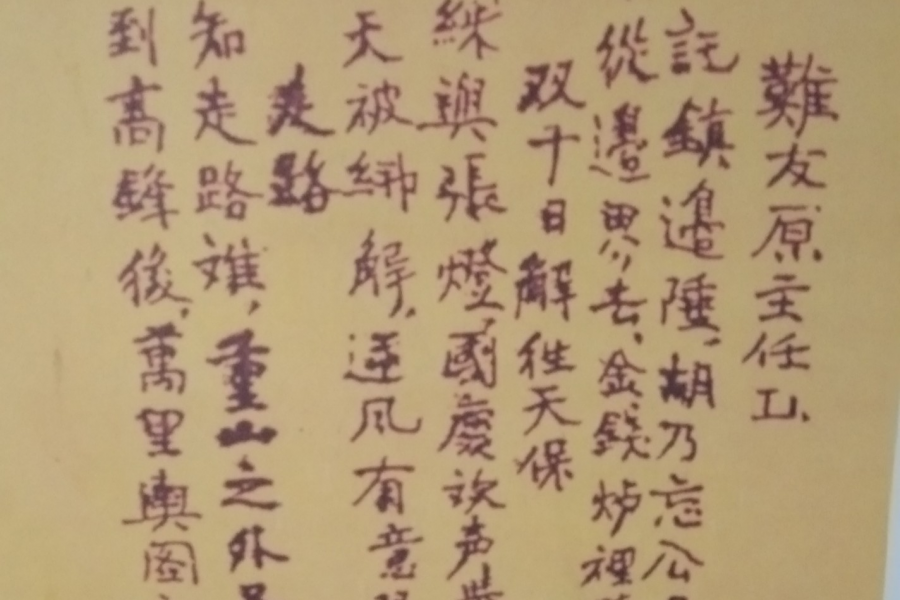 難友原主任L.
託鎮邊陲,胡乃忘公
從邊界去,金錢炉裡
双十日解往天保
綵與張燈,國慶欢声
天被綁解,逆风有意
走路
知走路难,重山之外
到高鋒後,萬里輿图